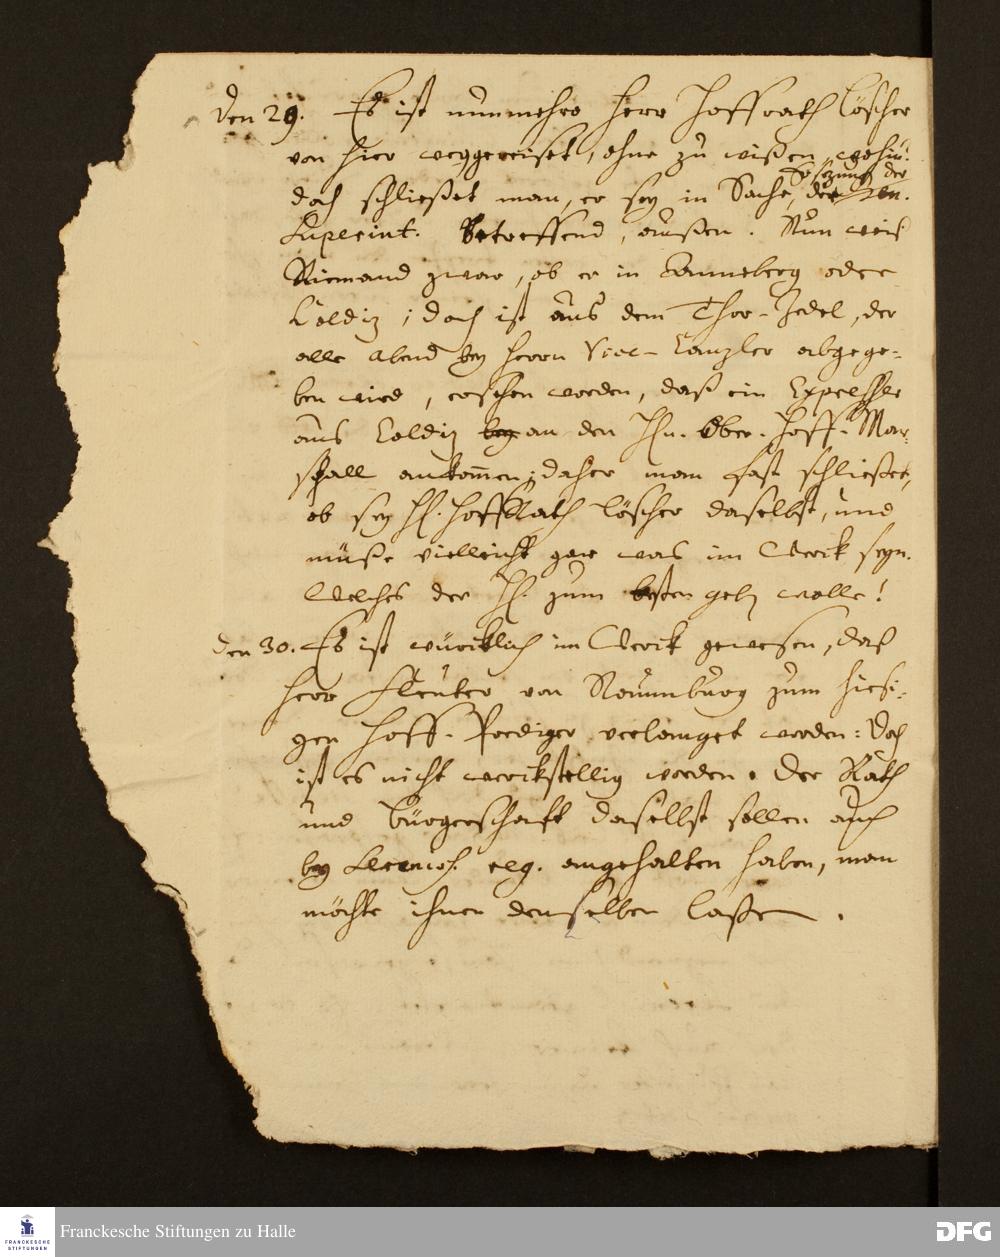 den 29. Es ist nunmehro Herr Hoffrath Löscher
von hier weggereiset, ohne zu wißen wohin:
doch schließet man, er sey in Sache, Ersezung der
Superint. betreffend, außen. Nun weiß
Niemand zwar, ob er in Annaberg oder
Coldiz; doch ist aus dem Thor-Zedel, der
alle Abend bey Herrn Vice-Canzler abgege-
ben wird, ersehen worden, daß ein Expresser
aus Coldiz bey an den Hn. Ober-Hoff-Mar-
schall ankom̄en; daher man fast schließet,
ob sey H. HoffRath Löscher daselbst, und
müße vielleicht gar was im Werck seyn.
Welches der H. zum besten geben wolle!
den 30. Es ist würcklich im Werck gewesen, daß
Herr von Naumburg zum hiesi-
gen Hoff-Prediger verlanget worden: Doch
ist es nicht werckstellig worden. Der Rath
und Bürgerschafft daselbst sollen auch
bey reg. angehalten haben, man
möchte ihnen denselben laßen.
Franckesche Stiftungen zu Halle
FRANCKESCHE
STIFTUNGEN
DFG